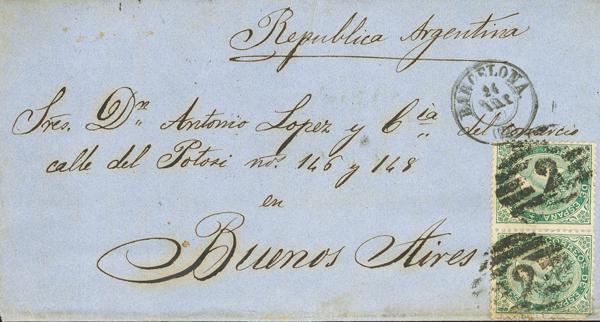 Republica Argentina
BARCELONA
24
Sres. Dn Antonio Lopez y Cia del comercio
calle del Potosi nos. 146 y 148
en
Buenos Aires
2
DE ESPAÑA
2
DE ESPAÑA